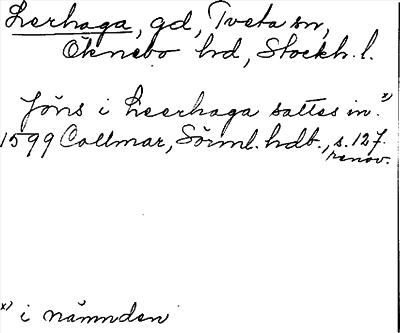 Lerhaga, gd, Tveta sn,
Öknebo hd, Stockh. l.
Jöns i Leerhaga sattes in. x)
1599 Collmar, Sörml. hdb., s. 127.
renov.
x) i nämnden